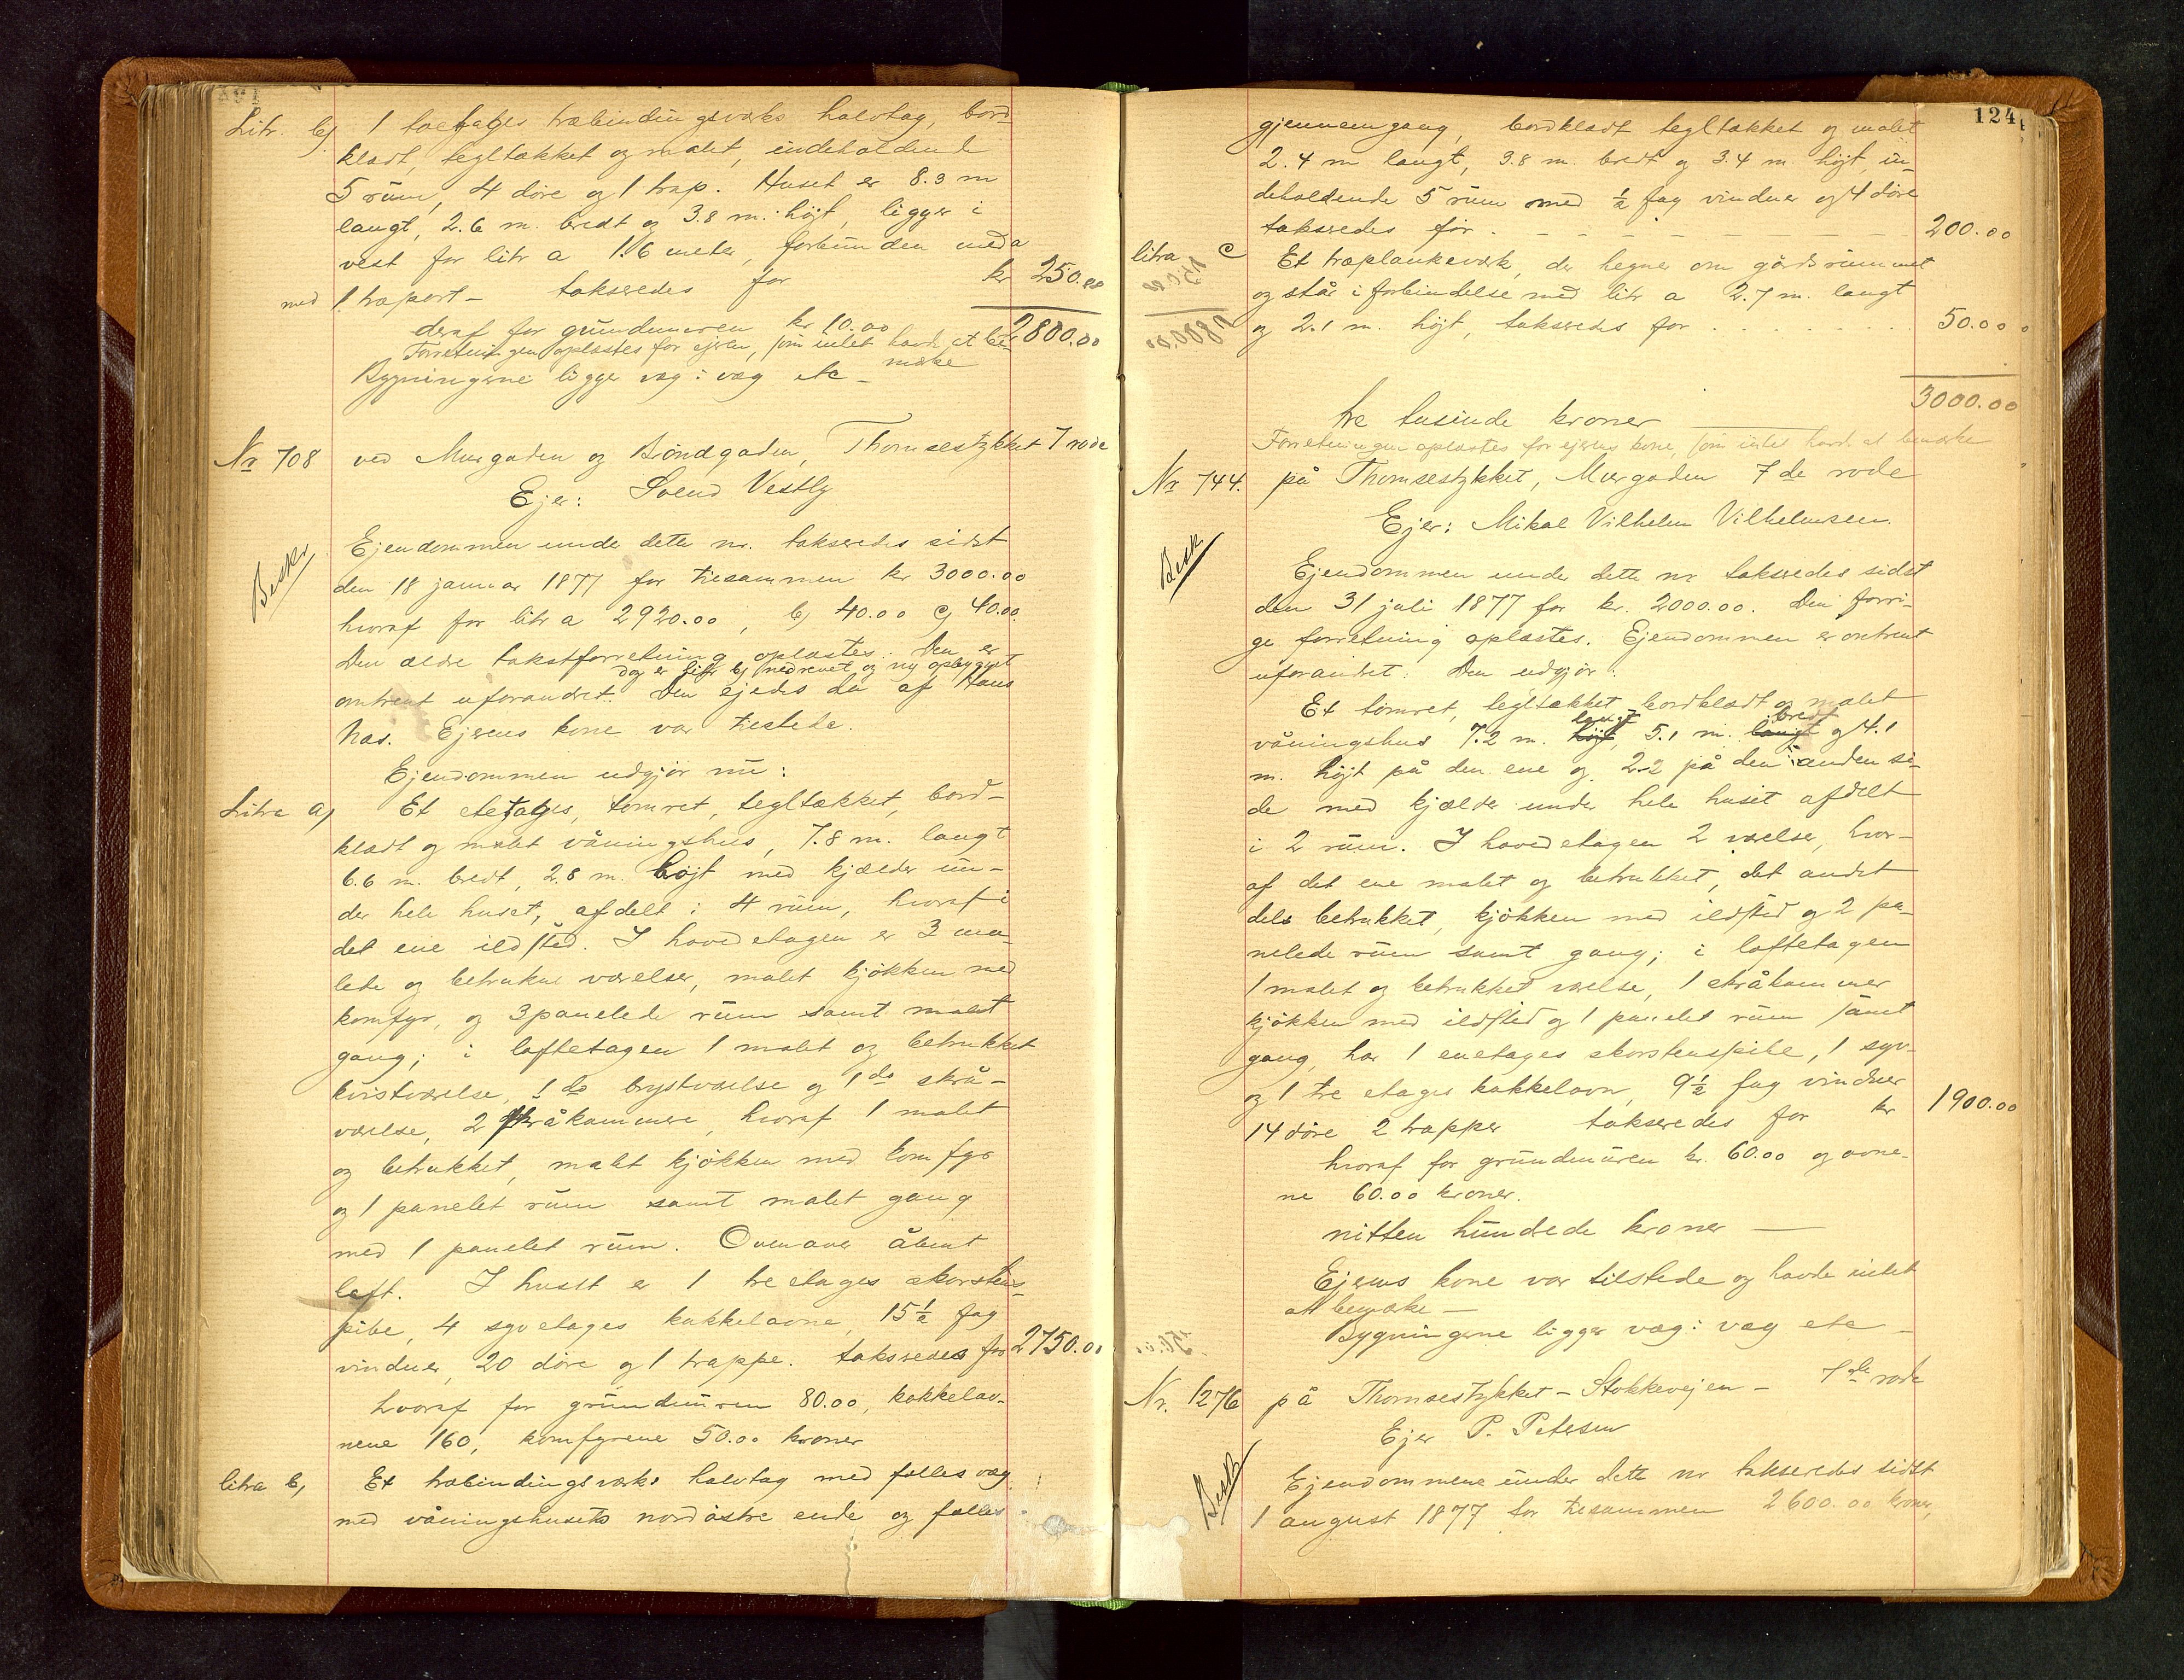 Litr. b) 1 toetages træbindingsværks halvtag, bord-
klædt, tegltækket og malet, indeholdende
5 rum, 4 døre og 1 trap. Huset er 8.3 m
langt, 2.6 m. bredt og 3.8 m. højt, ligger i
vest for litr a 1.6 meter, forbunden med a
med 1 træport - takseredes for kr 250.00
2800.00
deraf for grundmuren kr 10.00
Forretningen oplæstes for ejeren, som intet havde at be-
mærke
Bygningerne ligger væg i væg etc -
Nr 708 ved Murgaden og Søndgaden, Thomsestykket 7 rode
Ejer: Svend Vestly
Beskr.
Ejendommen unde dette nr. takseredes sidst
den 18 januar 1877 for tilsammen kr 3000.00
hvoraf for litr a 2920.00, b) 40.00 c) 40.00.
Den ældre takstforretning oplæstes. Den er
dog er litr b) nedrevet og ny opbygget
omtrent uforandret. Den ejedes da af Hans
Nas. Ejerens kone var tilstede.
Ejendommen udgjør nu:
Litra a) Et etetages, tømret, tegltækket, bord-
klædt og malet våningshus, 7.8 m. langt
6.6 m. bredt, 2.8 m. højt med kjælder un-
der hele huset, afdelt i 4 rum, hvoraf i
det ene ildsted. I hovedetagen er 3 ma-
lete og betrukne værelser, malet kjøkken med
komfyr, og 3 panelede rum samt malet
gang; i loftetagen 1 malet og betrukket
kvistværelse, 1 do brystværelse og 1 do skrå-
værelse, 2 skråkammere, hvoraf 1 malet
og betrukket, malet kjøkken med komfyr
og 1 panelet rum samt malet gang
med 1 panelet rum. Ovenover åbent
loft. I huset er 1 tre etages skorstens-
pibe, 4 syvetages kakkelovne, 15½ fag
vinduer, 20 døre og 1 trappe. takseredes for 2750.00
hvoraf for grundmuren 80.00, kakkelov-
nene 160, komfyrene 50.00 kroner
litra b, Et træbindingsværks halvtag med fælles væg
med våningshusets nordøstre ende og fælles
124
gjennemgang, bordklædt tegltækket og malet
2.4 m langt, 3.8 m. bredt og 3.4 m. højt, in-
deholdende 5 rum med ½ fag vinduer og 4 døre
takseredes for . - - - - - - - 200.00
litra c Et træplankeværk, der hegner om gårdsrummet
og står i forbindelse med litr a 2.7 m. langt
og 2.1 m. højt, takseredes for . . . . . . . . 50.00
3000.00
tre tusinde kroner
Forretningen oplæstes for ejerens kone, som intet havde at bemærke
Nr 744. på Thomsestykket, Murgaden 7de rode
Ejer: Mikal Vilhelm Vilhelmsen.
Besk
Ejendommen under dette nr takseredes sidst
den 31 juli 1877 for kr. 2000.00. Den forri-
ge forretning oplæstes. Ejendommen er omtrent
uforandret. Den udgjør:
Et tømret, tegltækket, bordklædt og malet
langt bredt
våningshus 7.2 m. højt, 5.1 m. langt og 4.1
m. højt på den ene og 2.2 på den anden si-
de med kjælder under hele huset afdelt
i 2 rum. I hovedetagen 2 værelser, hvor-
af det ene malet og betrukket, det andet
dels betrukket, kjøkken med ildsted og 2 pa-
nelede rum samt gang; i loftetagen
1 malet og betrukket værelse, 1 skråkammer
kjøkken med ildsted og 1 panelet rum samt
gang, har 1 enetages skorstenspibe, 1 syv-
og 1 tre etages kakkelovn, 9½ fag vinduer
14 døre 2 trapper takseredes for kr 1900.00
hvoraf for grundmuren kr. 60.00 og ovne-
ne 60.00 kroner.
nitten hundrede kroner
Ejerens kone var tilstede og havde intet
at bemærke -
Bygningerne ligger væg i væg etc -
Nr. 1276 på Thomsestykket - Stokkevejen - 7de rode
Ejer P. Petersen
Beskr
Ejendommene under dette nr takseredes sidst
1 august 1877 for tilsammen 2600.00 kroner,